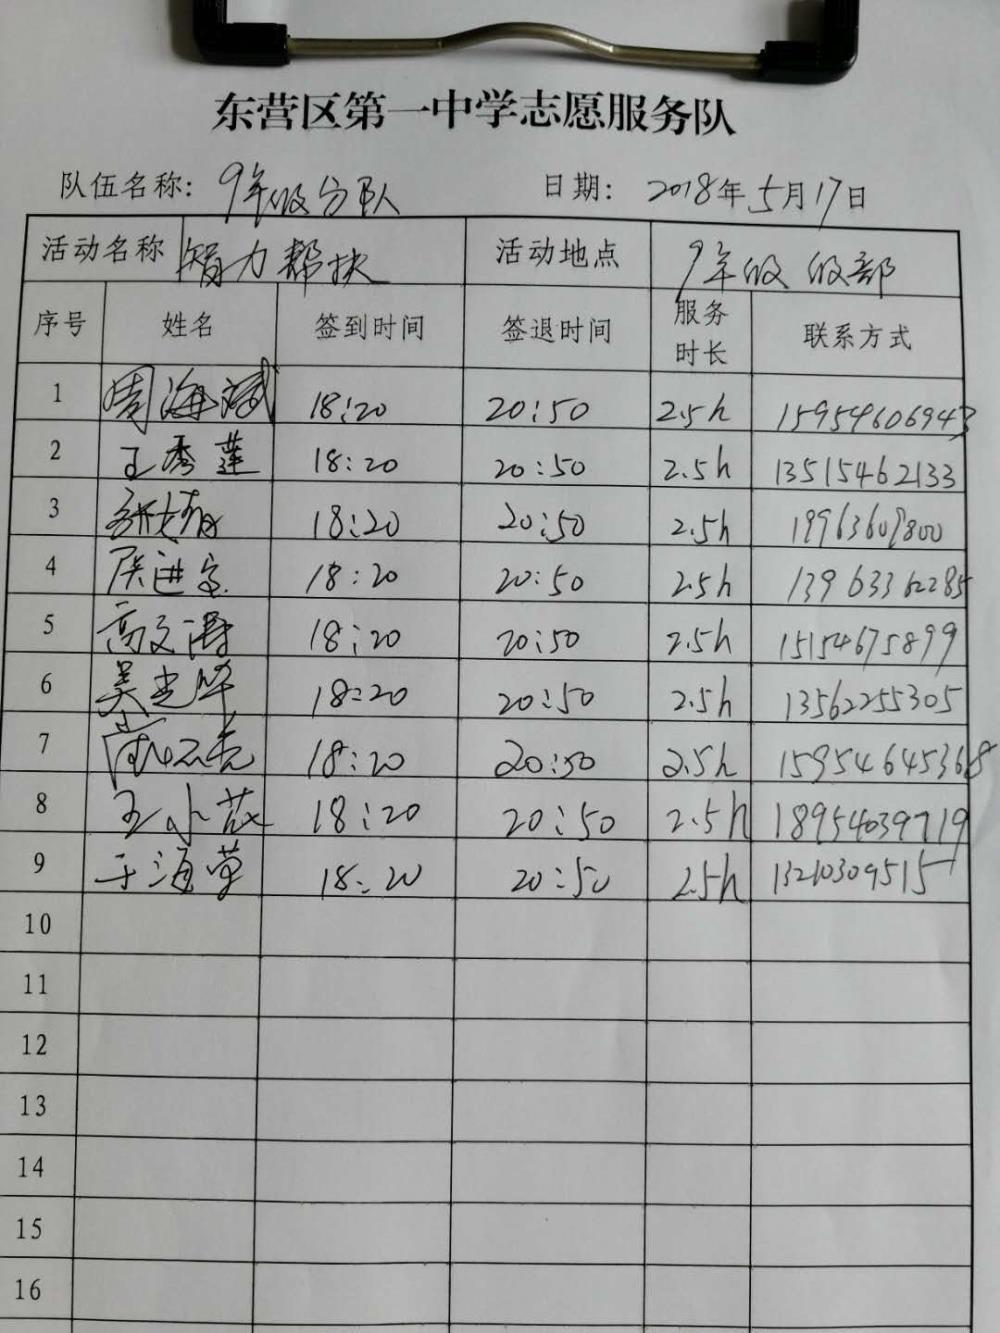 东营区第一中学志愿服务队
队伍名称: 9年级分队 日期: 2018年5月17日
活动名称 智力帮扶 活动地点 9年级 级部
序号 姓名 签到时间 签退时间 服务时长 联系方式
1 周海斌 18:20 20:50 2.5h 15954606943
2 王秀莲 18:20 20:50 2.5h 13515462133
3 18:20 20:50 2.5h 19963609800
4 18:20 20:50 2.5h 13963362285
5 高文涛 18:20 20:50 2.5h 15154675899
6 吴光华 18:20 20:50 2.5h 13562255305
7 18:20 20:50 2.5h 15954645368
8 王小花 18:20 20:50 2.5h 18954039719
9 于海莹 18:20 20:50 2.5h 13210309515
10
11
12
13
14
15
16